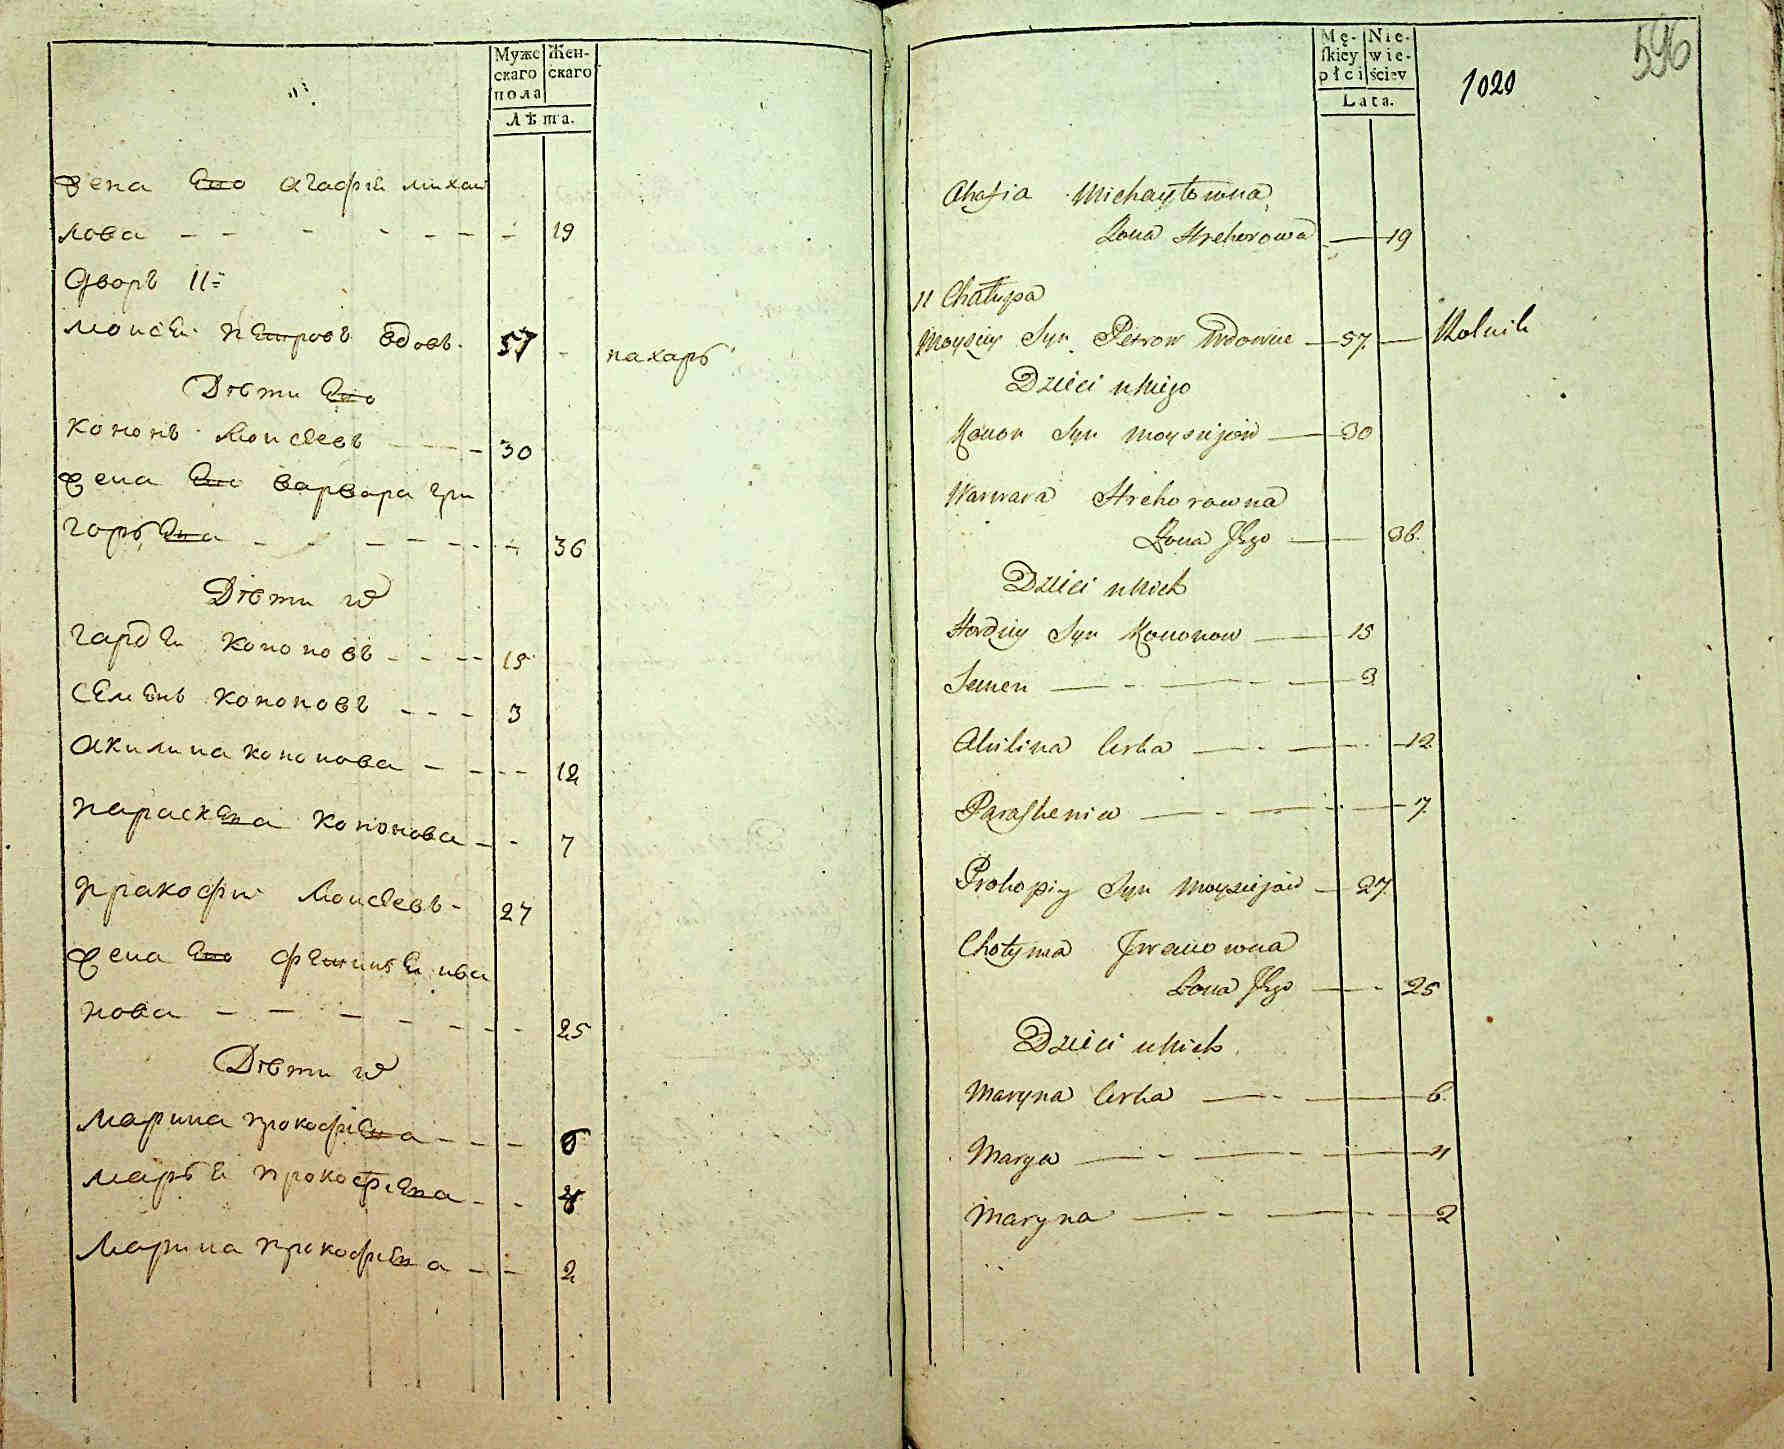 Муже
скаго
пола
Жен-
скаго
Лѣта.
жена Его Агафия михаи
лова - - - - - - - 19
Дворъ 11:
Моисеи Петровъ вдовъ. 57 - пахарь
Дѣти Его
Кононъ Моисеевъ - 30
жена Его варвара гри
горьева - - - - - - 36
Дѣти их
гардеи кононовъ - - - 15
Семенъ кононовъ - - - 3
Акилина кононова - - - - 12
Параскева кононова - - 7
Пракофии Моисеевъ - 27
жена Его Фетиния ива
нова - - - - - - - 25
Дѣти их
Марина прокофиева - - - 6
Марья прокофиева - - 4
Марина прокофиева - - 2
Mę-
skiey
płci
Nie-
wie-
ściey
Lata.
1020
596
Ahafia Michayłowna
Zona Hrehorowa — 19
11 Chałupa
Moysiey Syn Petrow Wdowiec — 57 — Rolnik
Dzieci u niego
Konon Syn Moysiejow — 30
Warwara Hrehorowna
Zona Jego — 36.
Dzieci u nich
Hordiey Syn Kononow — 15
Semen — - — - — 3
Akilina Corka — - — - 12
Paraskewia — - — - — 7
Prokopiy Syn Moysiejow — 27
Chotyma Jwanowna
Zona Jego — - 25
Dzieci u nich
Maryna Corka — - — 6.
Marya — - — - — 4
Maryna — - — - — 2